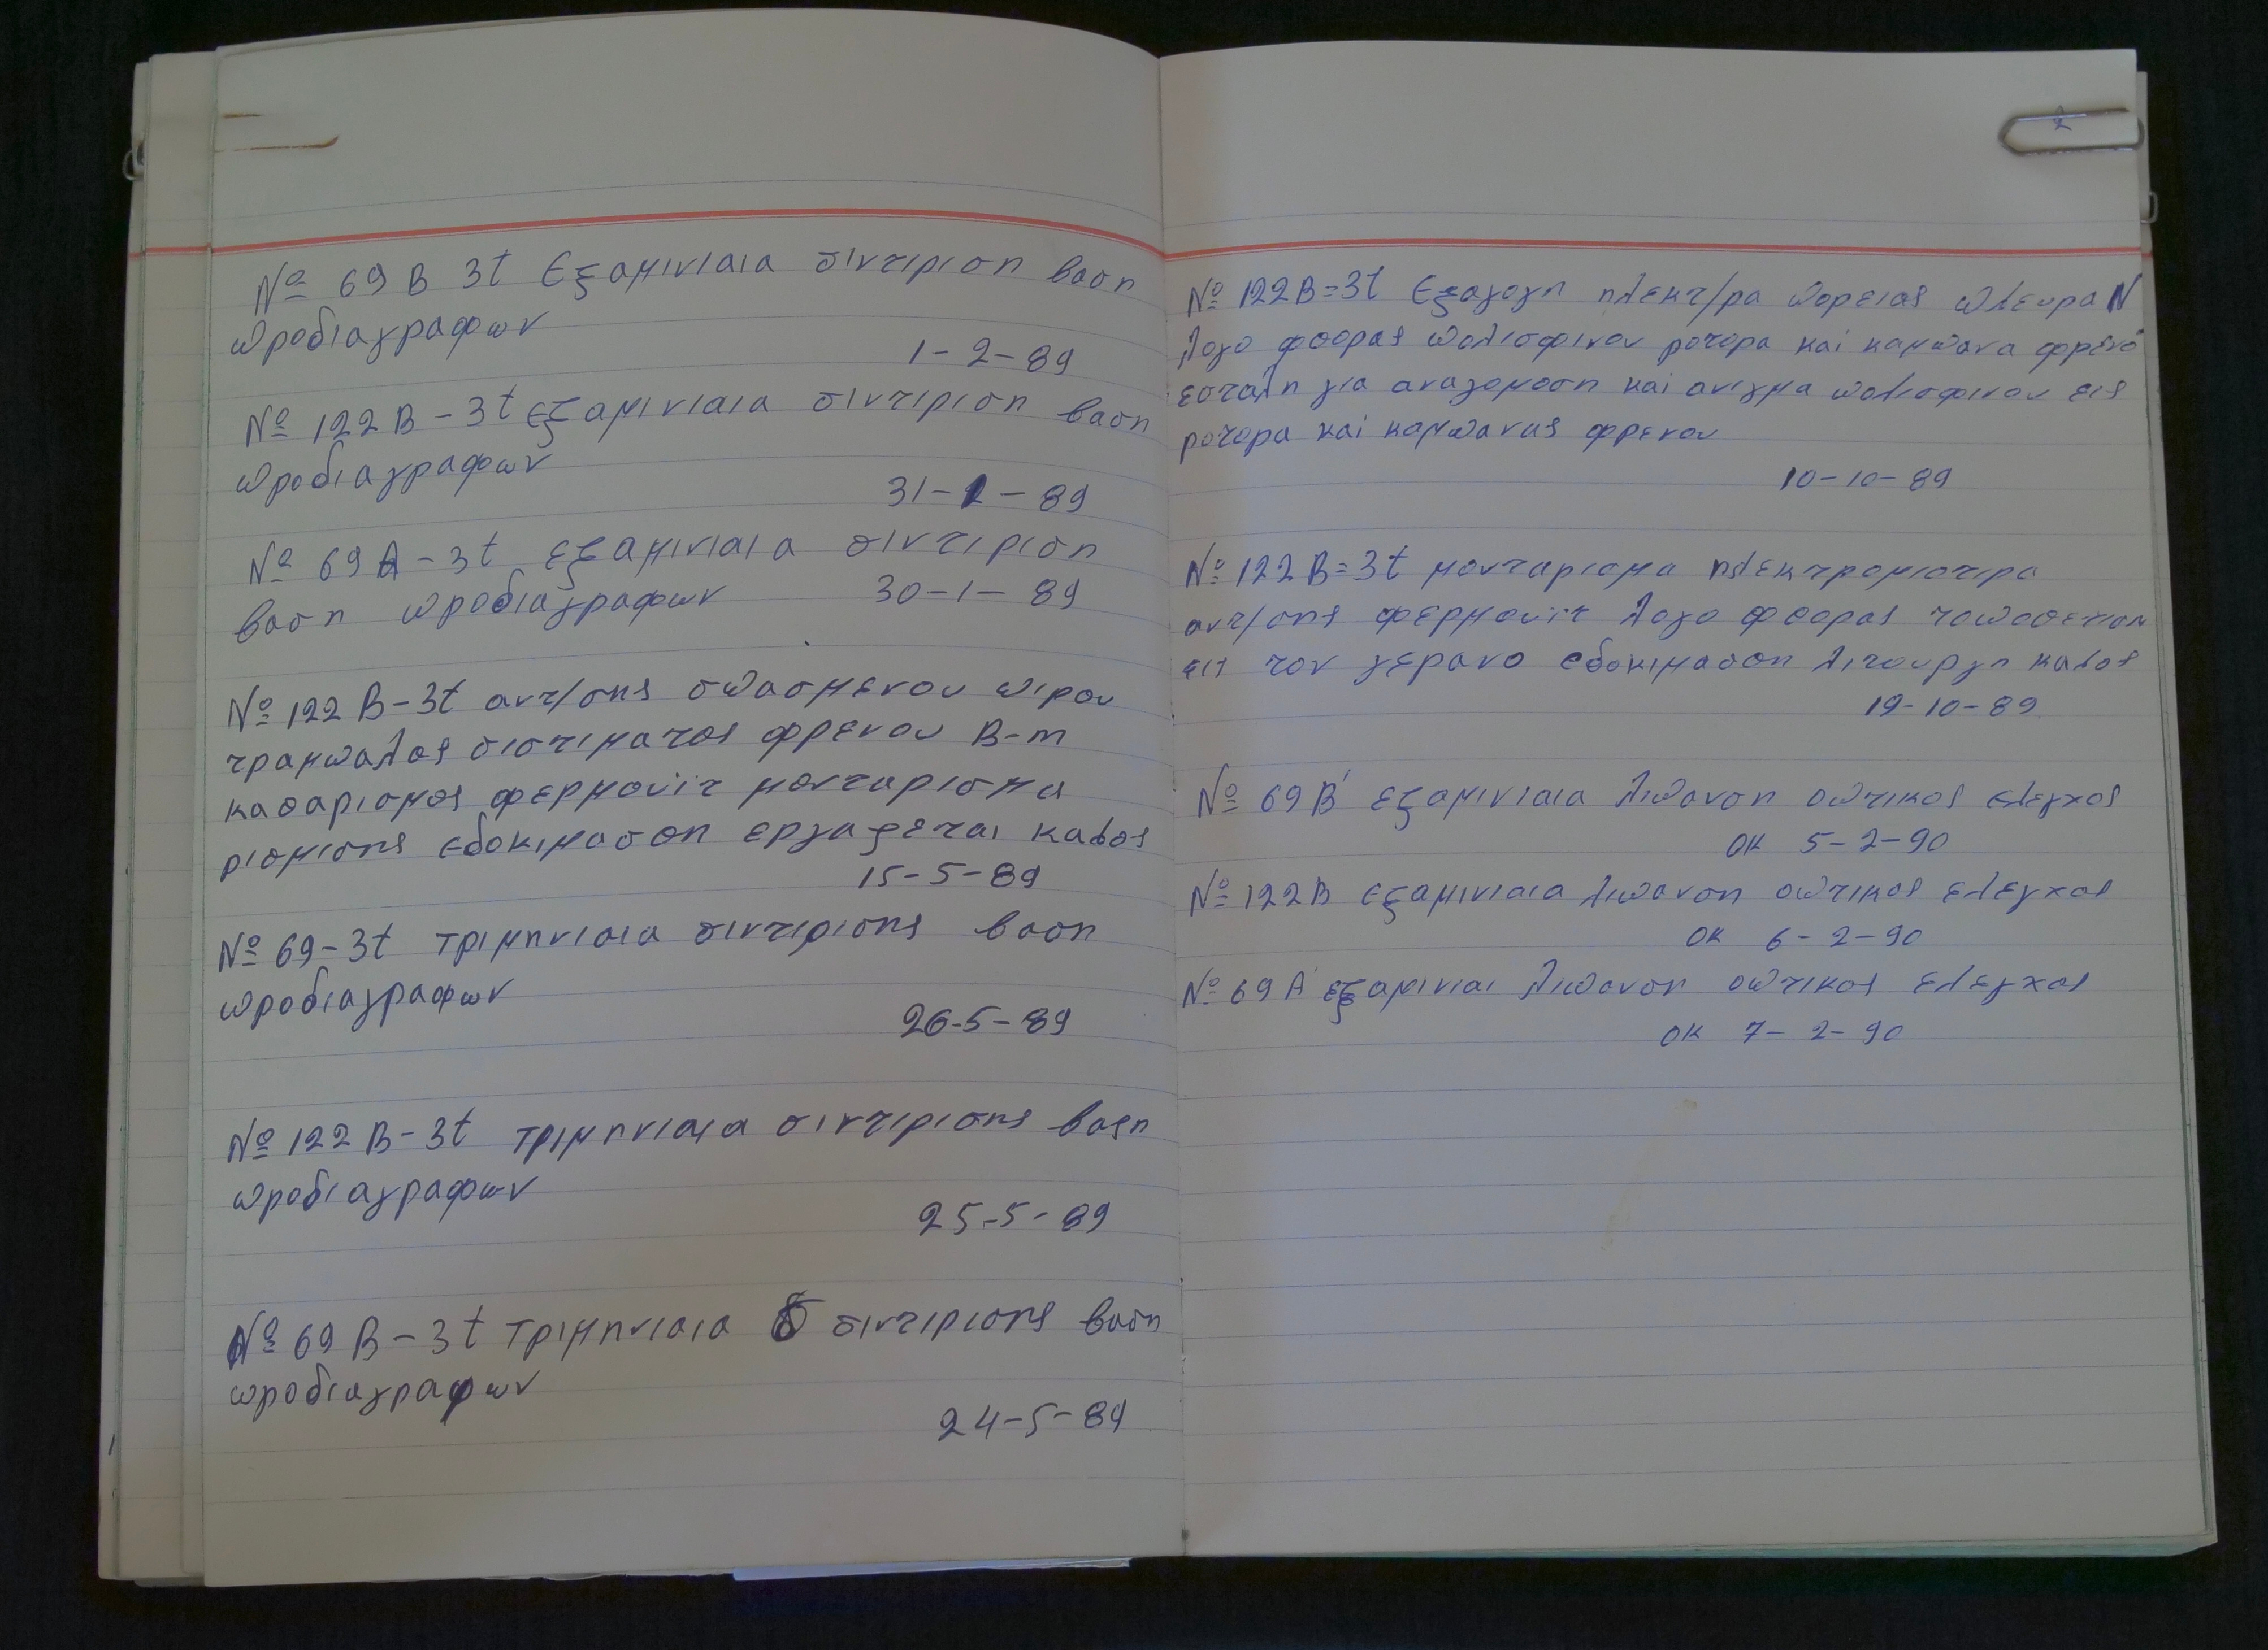 Νº 69 Β 3t Εξαμινιαια σιντιριση βαση
προδιαγραφων
1-2-89
Νº 122 Β-3t εξαμινιαια σιντιριση βαση
προδιαγραφων
31-1-89
Νº 69 Α-3t εξαμινιαια σιντιριση
βαση προδιαγραφων 30-1-89
Νº 122 Β-3t αντ/σης σπασμενου πιρου
τραμπαλας σιστιματος φρενου Β-m
καθαρισμος φερμουϊτ μονταρισμα
ρισμισης εδοκιμασθη εργαζεται καλος
15-5-89
Νº 69-3t τριμηνιαια σιντιρισης βαση
προδιαγραφων
26-5-89
Νº 122 Β-3t τριμηνιαια σιντιρισης βαση
προδιαγραφων
25-5-89
Νº 69 Β-3t τριμηνιαια σιντιρισης βαση
προδιαγραφων
24-5-89
2
Νº 122Β=3t Εξαγογη ηλεκτ/ρα πορειας πλευρα Ν
λογο φθορας πολισφινου ροτορα και καμπανα φρενο
εσταλη για αναγομοση και ανιγμα πολισφινου εις
ροτορα και καμπανας φρενου
10-10-89
Νº 122 Β=3t μονταρισμα ηλεκτρομιοτιρα
αντ/σης φερμουϊτ λογο φθορας τοποθετιση
εις τον γερανο εδοκιμασθη λιτουργη καλος
19-10-89
Νº 69 Β' εξαμινιαια λιπανση οπτικος ελεγχος
ΟΚ 5-2-90
Νº 122Β εξαμινιαια λιπανση οπτικος ελεγχος
ΟΚ 6-2-90
Νº 69 Α' εξαμινιαι λιπανση οπτικος ελεγχος
ΟΚ 7-2-90